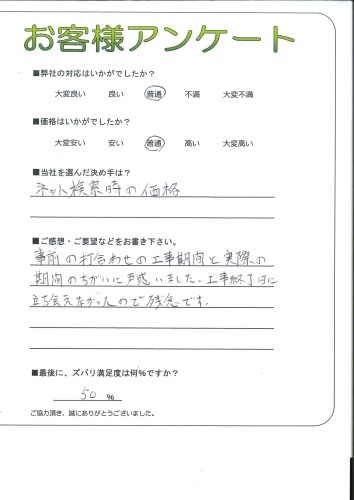 お客様アンケート
■弊社の対応はいかがでしたか？
大変良い 良い 普通 不満 大変不満
■価格はいかがでしたか？
大変安い 安い 普通 高い 大変高い
■当社を選んだ決め手は？
ネット検索時の価格
■ご感想・ご要望などをお書き下さい。
事前の打合わせの工事期間と実際の
期間のちがいに戸惑いました。工事終了日に
立ち会えなかったので残念です。
■最後に、ズバリ満足度は何%ですか？
50 %
ご協力頂き、誠にありがとうございました。